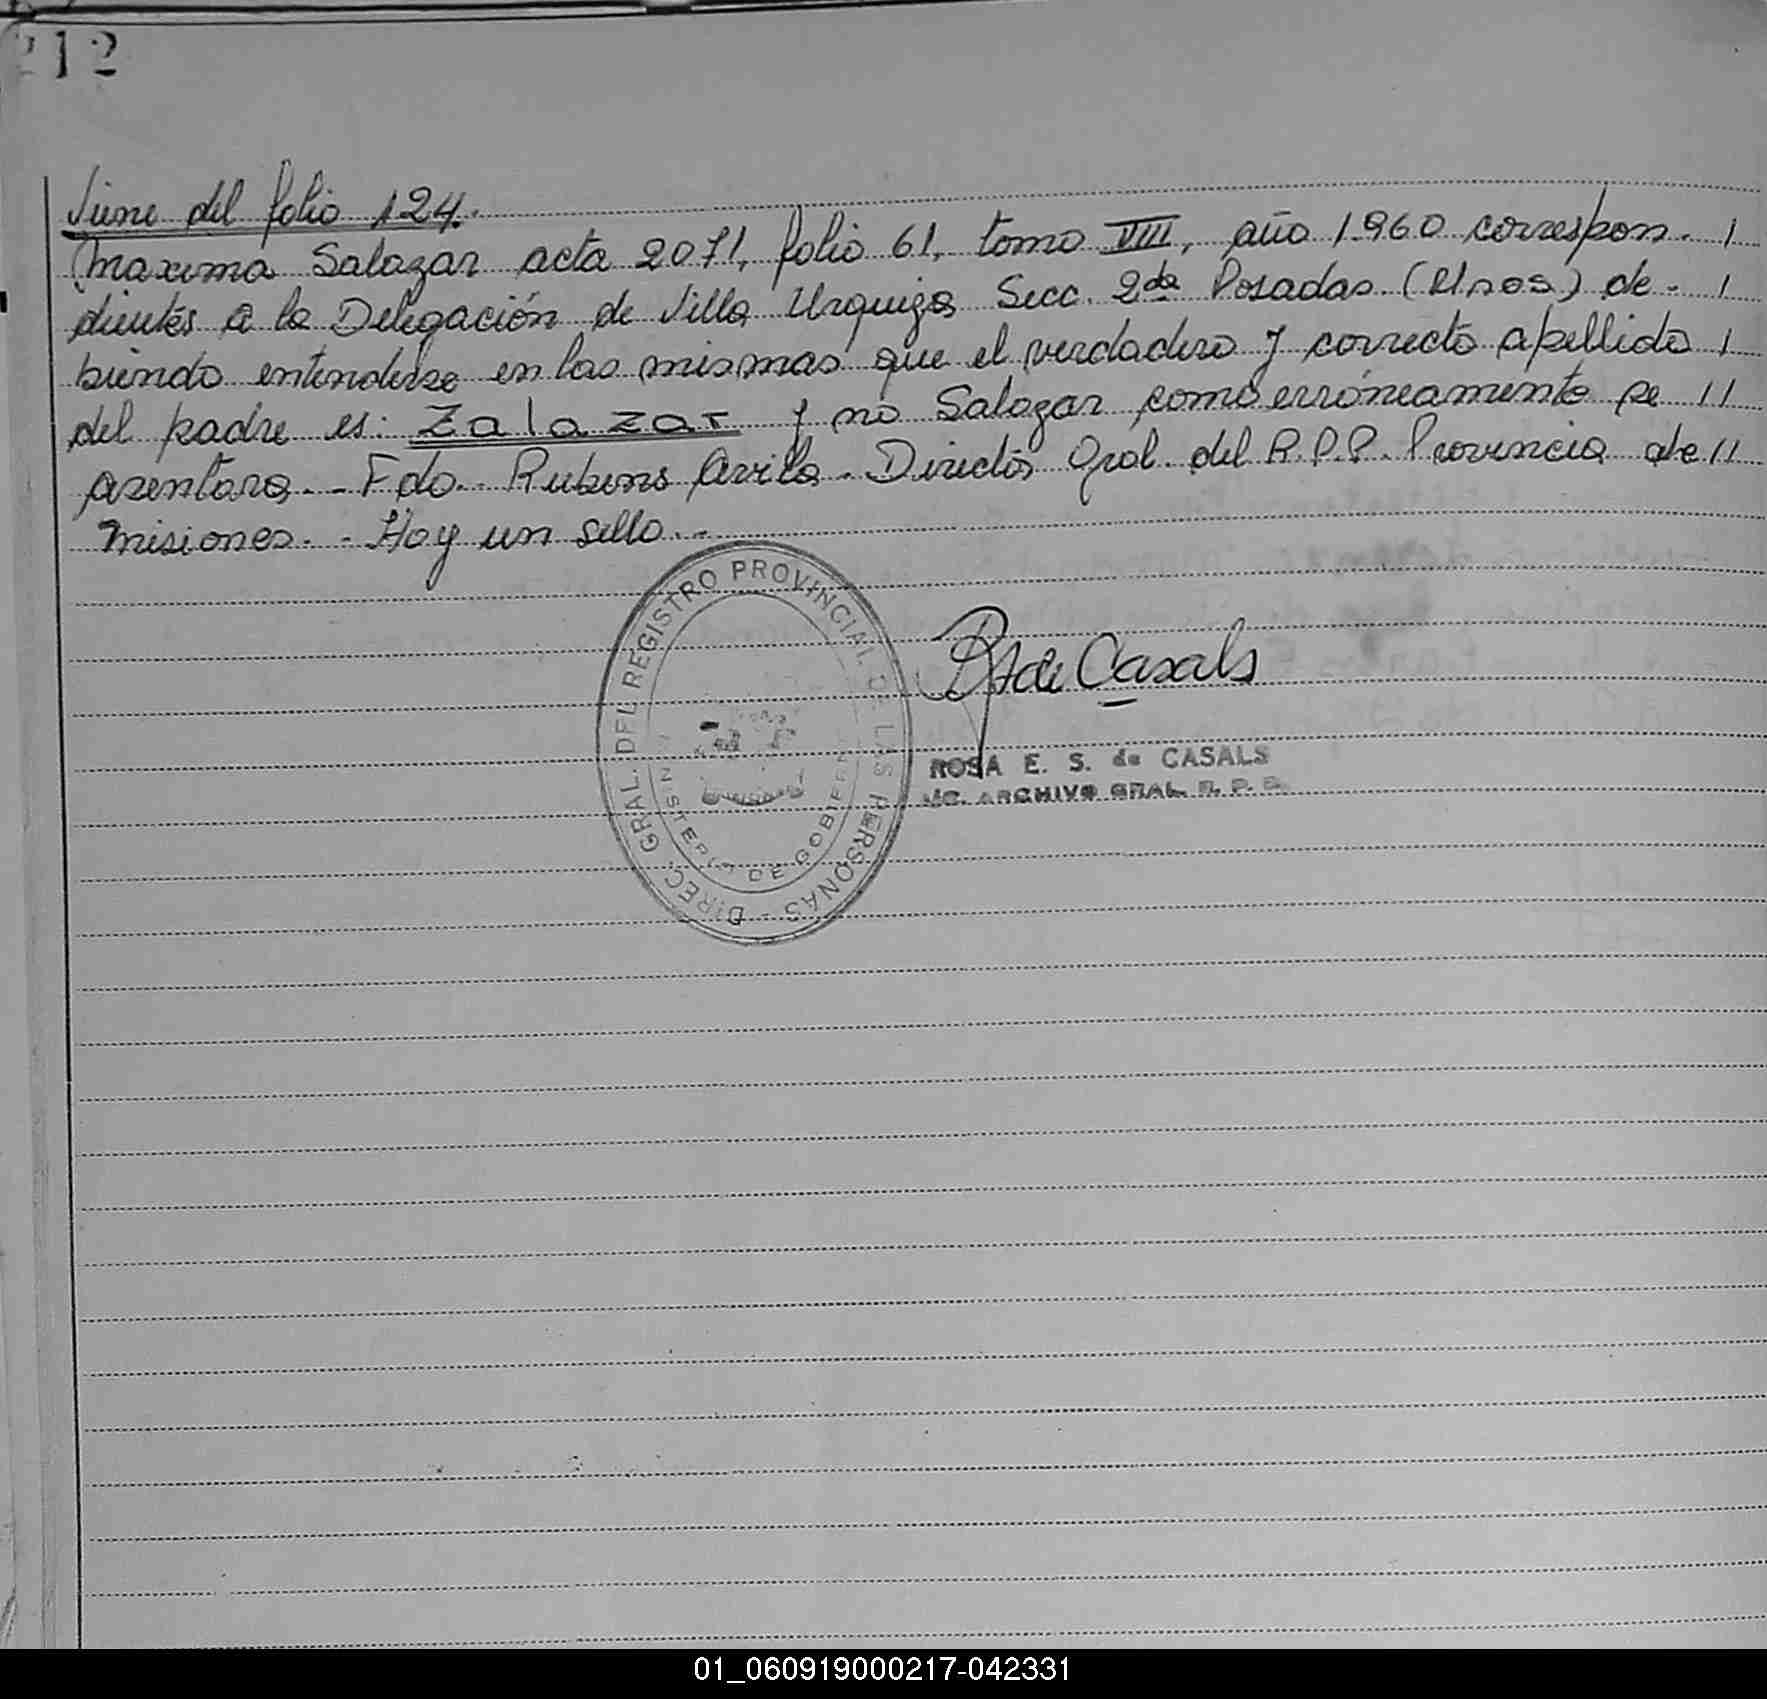 212
Viene del folio 124.
Maxima Salazar acta 2071, folio 61, tomo VIII, año 1.960 correspon- /
dientes a la Delegación de Villa Urquiza Secc. 2da Posadas (Mnes) de- /
biendo entenderse en las mismas que el verdadero y correcto apellido /
del padre es: Zalazar y no Salazar como erróneamente se //
asentara.- Fdo. Rubens Avila. Director Gral. del R.P.P. Provincia de //
Misiones.- Hay un sello.-
DIREC. GRAL. DEL REGISTRO PROVINCIAL DE LAS PERSONAS -
MINISTERIO DE GOBIERNO
de Casals
ROSA E. S. de CASALS
ARCHIVO GRAL. R. P. P.
01_060919000217-042331